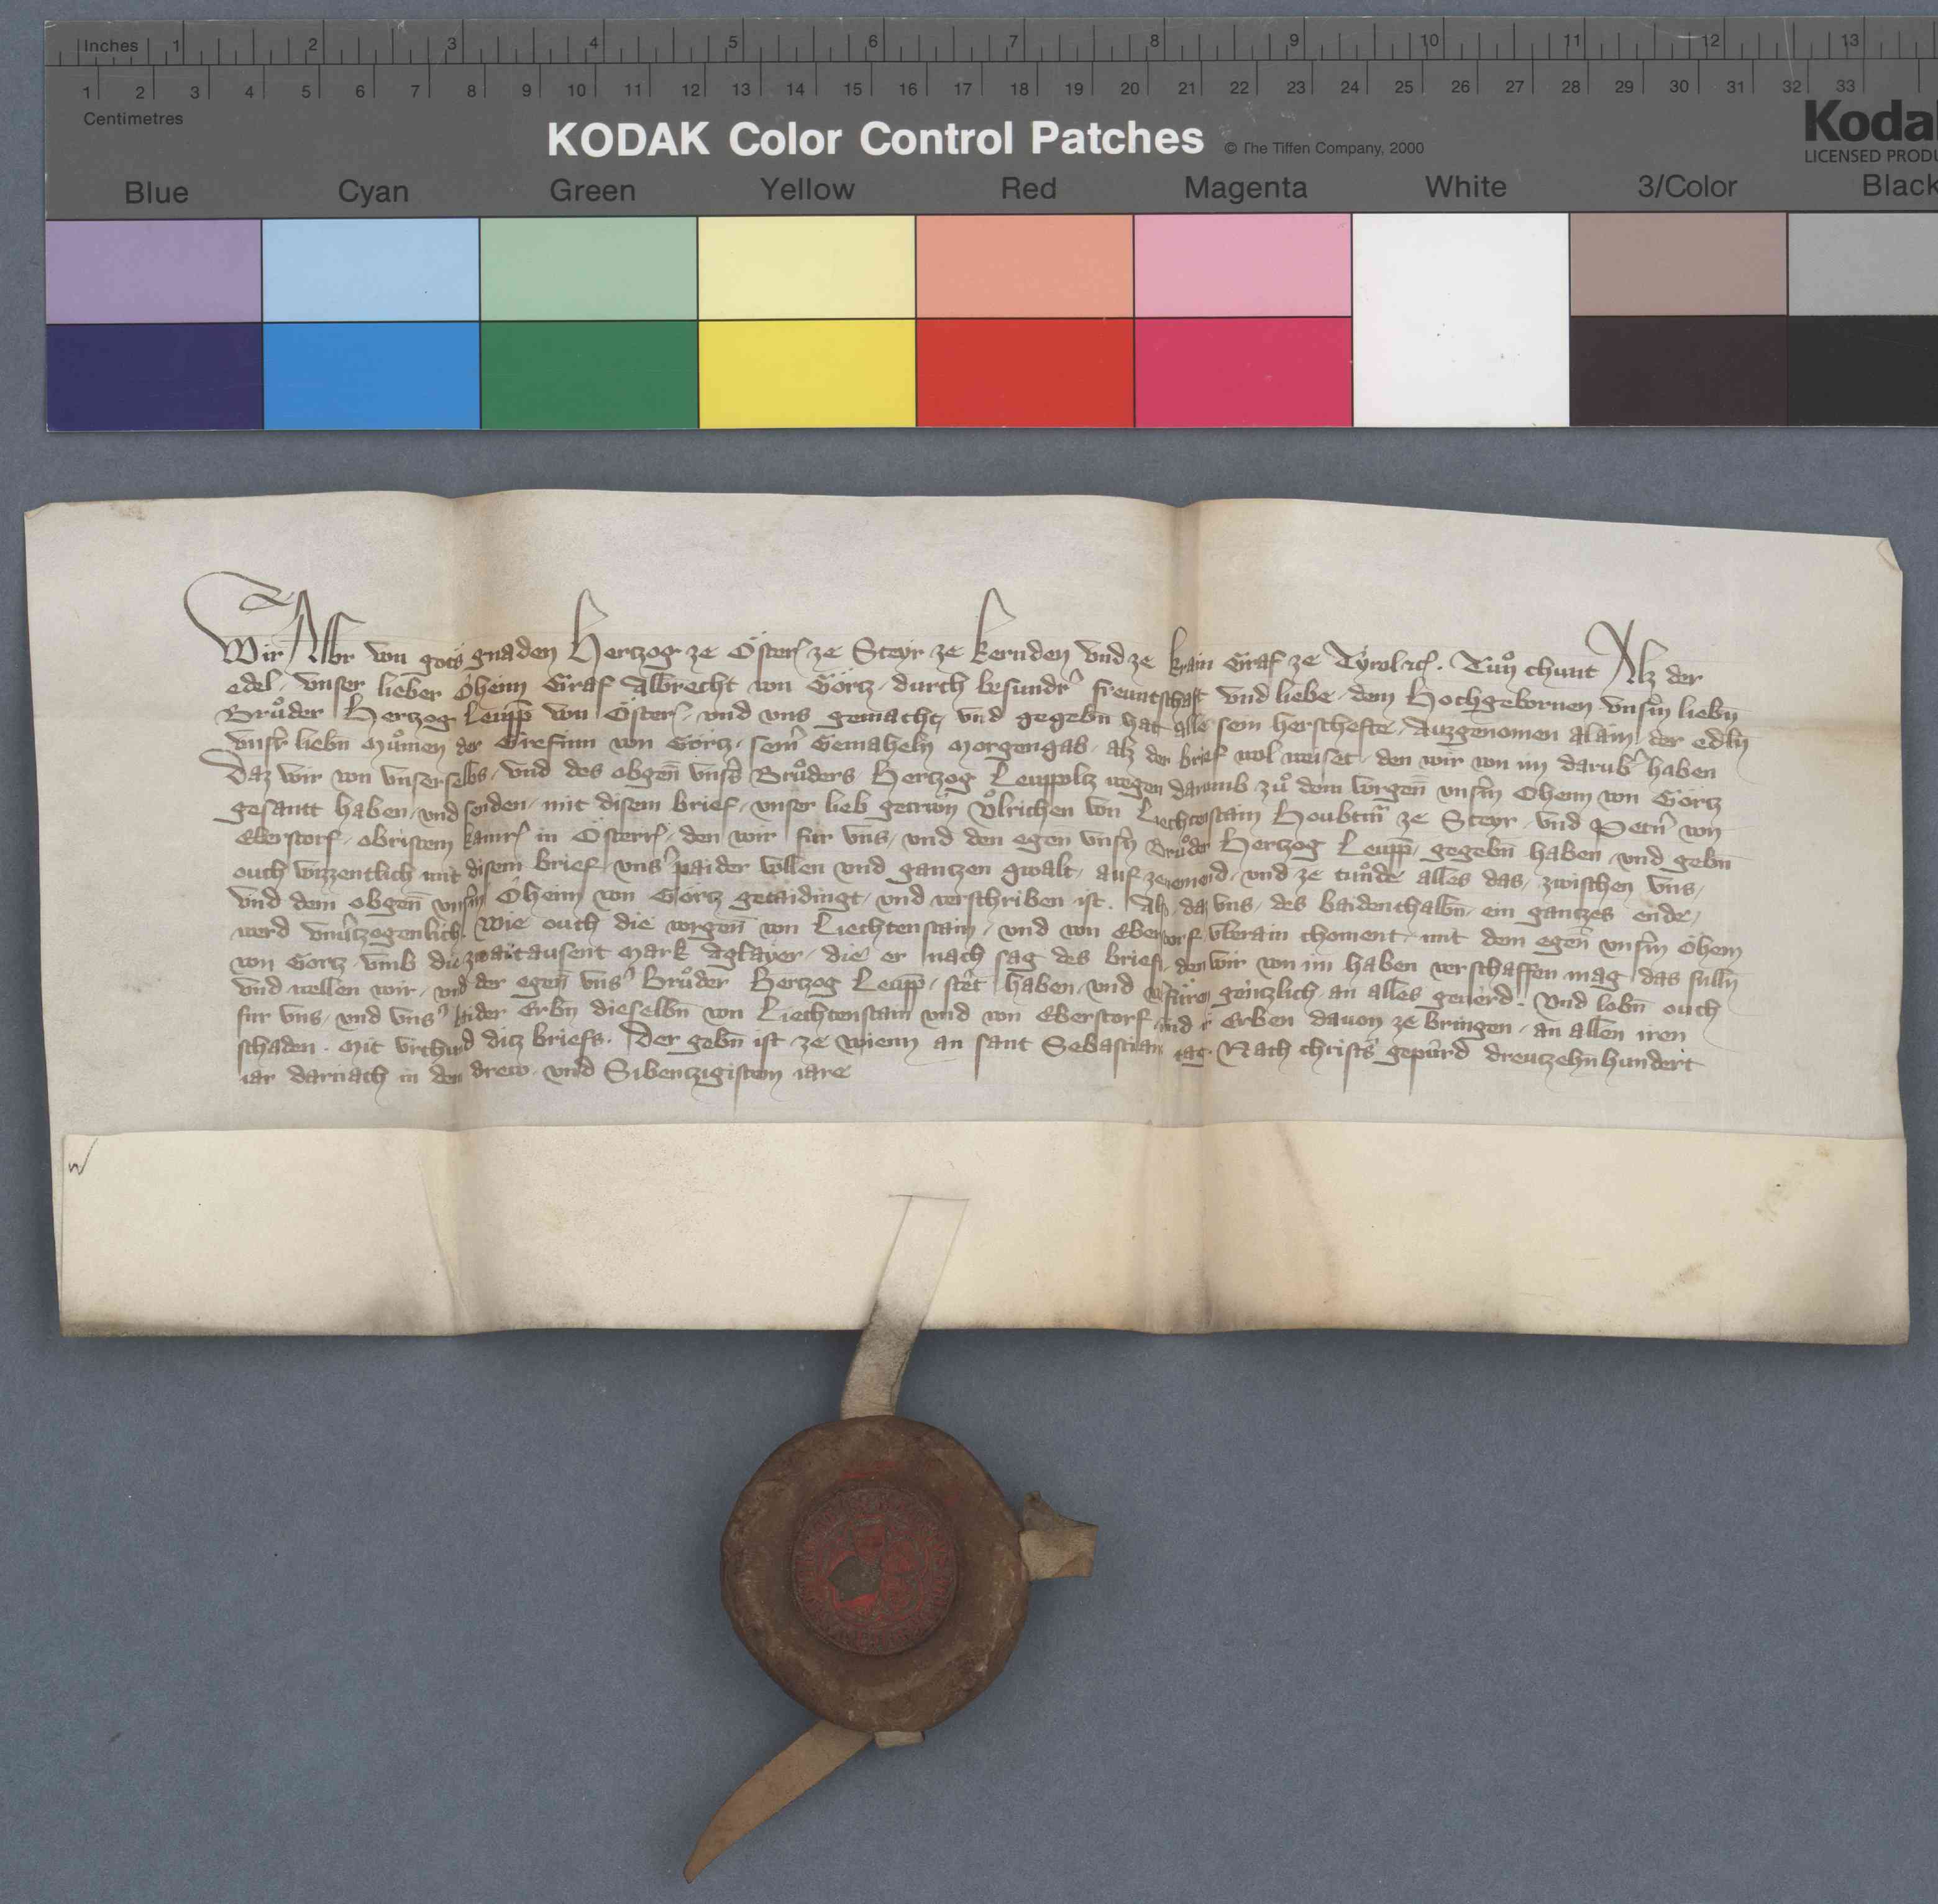 Inches 1 2 3 4 5 6 7 8 9 10 11 12 13
1 2 3 4 5 6 7 8 9 10 11 12 13 14 15 16 17 18 19 20 21 22 23 24 25 26 27 28 29 30 31 32 33
Centimetres
KODAK Color Control Patches © The Tiffen Company, 2000
Kodak
LICENSED PRODU
Blue Cyan Green Yellow Red Magenta White 3/Color Black
Wir Albr von gots gnaden Hertzog ze Österr ze Steyr ze kernden vnd ze krain Graf ze Tyrol etc. Tůn chunt Alz der
edel, vnser lieber Öheim Graf Albrecht von Görtz, durch besundr freuntschaft vnd liebe, dem Hochgebornen vnsm liebn
Brůder Hertzog Leupp von Österr, vnd vns gemacht, vnd gegebn hat alle sein herschefte, Auzgenomen alain der edln
vnsr liebn Můmen der Grefinn von Görtz, seinr Gemaheln Morgengab, alz der brief wol weiset, den wir von im darubr haben
Daz wir von vnserselbs, vnd des obgen vnsrs Brůders Hertzog Leuppoltz wegen darumb zů dem vorgen vnsrm Öhem von Görtz
gesantt haben, vnd senden, mit disem brief, vnser lieb getrwn Ůlrichen von Liechtenstain Houbtm ze Steyr, vnd Petrn von
Eberstorf, obristem kamrr in Österr, den wir für vns, vnd den egen vnsrn Brůder Hertzog Leupp, gegebn haben, vnd gebn
ouch wizzentlich mit disem brief, vnsr paider vollen vnd gantzen gwalt, auf ze nemend, vnd ze tůnde alles das, zwischen vns,
vnd dem obgen vnsrm Öheim von Görtz getaidingt, vnd verschriben ist. Also, daz vns, des baidenthalbn, ein gantzes ende,
werd vnuerzogenlich. Wie ouch die vorgen von Liechtenstain, vnd von Eberstorf, vberain choment, mit dem egen vnsrm Öhem
von Görtz, vmb die zwaitausent Mark Aglayer, die er nach sag des briefs, den wir von im haben verschaffen mag, das sulln
vnd wellen wir, vnd der egen vnsr Brůder Hertzog Leupp, stet haben, vnd volfůren gentzlich an alles geuerd. Vnd lobn ouch
fur vns, vnd vnsr baider Erbn dieselbn von Liechtenstain vnd von Eberstorf vnd ir Erben dauon ze bringen, an allen iren
schaden. Mit vrchund ditz briefs. Der gebn ist ze wienn an sant Sebastians tag. Nach christs gepürd dreutzehnhundert
iar darnach in dem drew, vnd Sibentzigistem iare